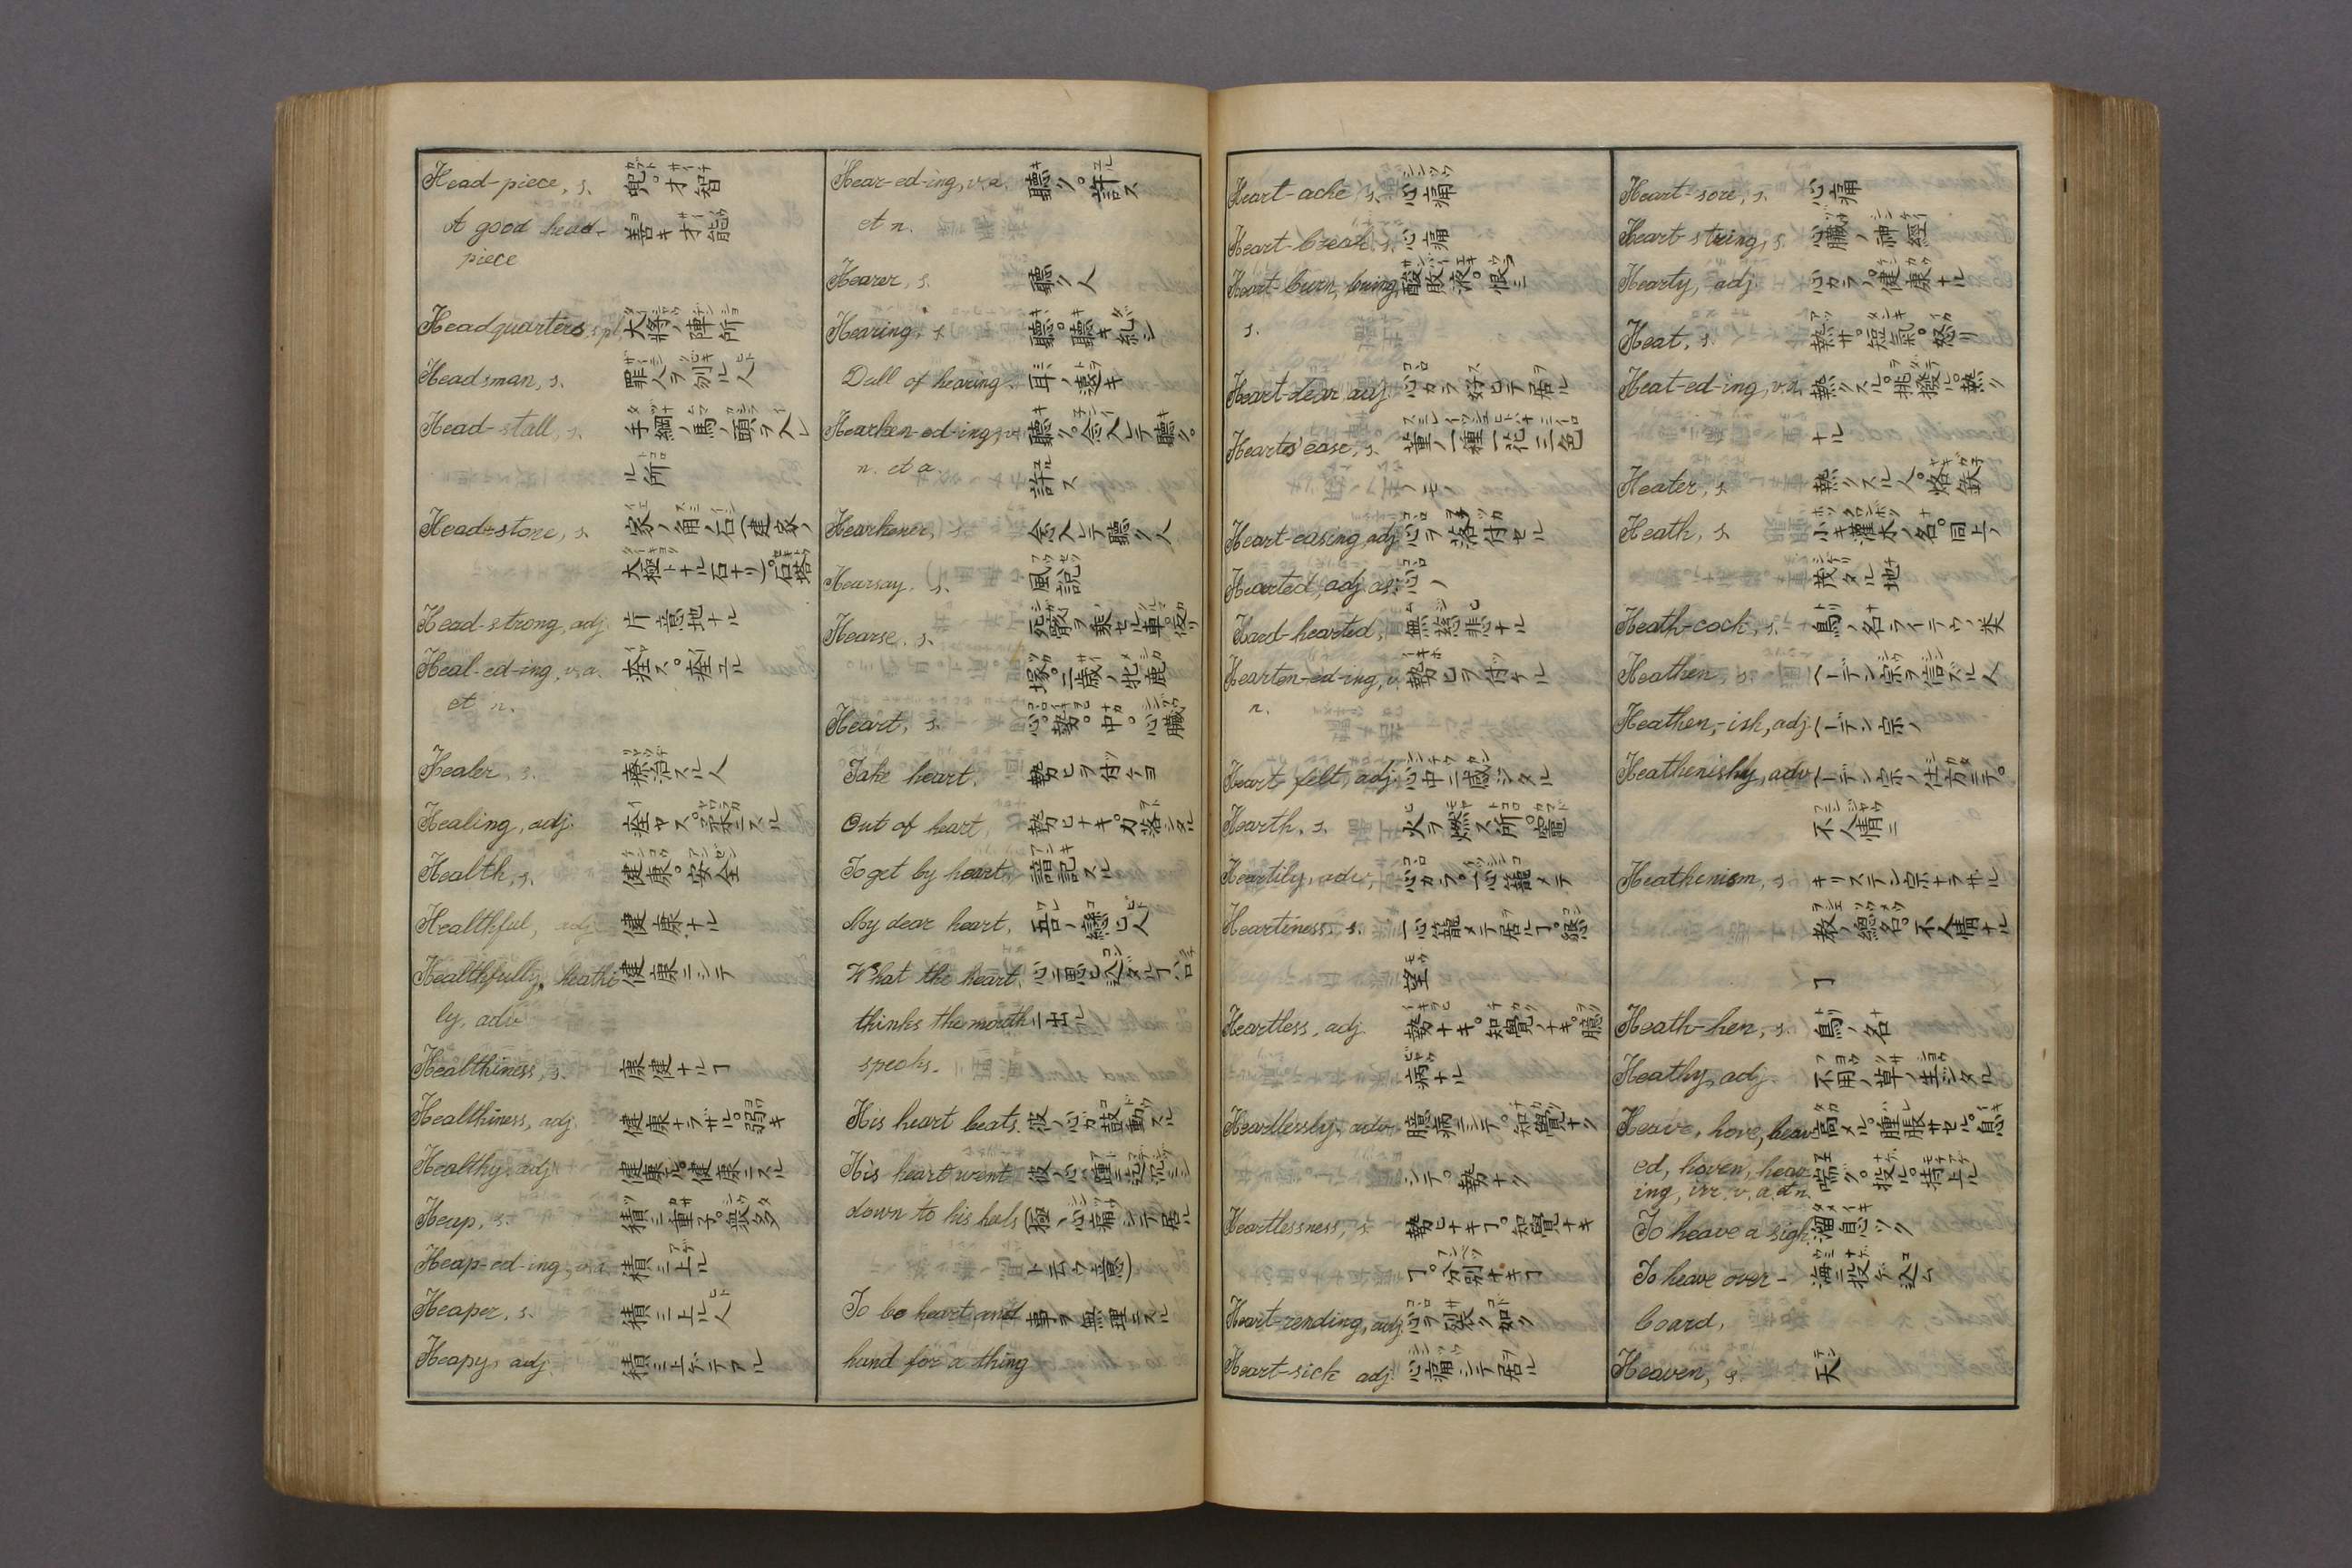 Head-piece, s. 兜。才智
A good head- 善キ才能
piece
Headquarters, s. pl. 大将ノ陣所
Headsman, s. 罪人ヲ刎ル人
Head-stall, s. 手綱ノ馬ノ頭ヲ入レ
ル所
Head-stone, s. 家ノ角ノ石(建家ノ
大極トナル石ナリ)。石塔
Head-strong, adj. 片意地ナル
Heal-ed-ing, v. a. 痊ス。痊ユル
et n.
Healer, s. 療治スル人
Healing, adj. 痊ヤス。柔ニスル
Health, s. 健康。安全
Healthful, adj. 健康ナル
Healthfully, heathi 健康ニシテ
ly, adv
Healthiness, s. 康健ナルヿ
Healthiness, adj. 健康ナラザル。弱キ
Healthy, adj. 健康ル。健康ニスル
Heap, s. 積ミ重子。衆多
Heap-ed-ing, v. a. 積ミ上ル
Heaper, s. 積ミ上ル人
Heapy, adj. 積ミ上ゲテアル
Hear-ed-ing, v. a. 聽ク。許ス
et n.
Hearer, s. 聽ク人
Hearing, s. 聽。聽キ糺シ
Dull of hearing. 耳ノ遠キ
Hearken-ed-ing, v. 聽ク。念入レテ聽ク。
n. et a. 許ス
Hearkener, s. 念入レテ聽ク人
Hearsay, s. 風説
Hearse, s. 死骸ヲ乗セル車。假
塚。二歳ノ牝鹿
Heart, s. 心。勢。中。心臓
Take heart. 勢ヒヲ付ケヨ
Out of heart, 勢ヒナキ。力落シタル
To get by heart, 諳記スル
My dear heart, 吾ノ戀ヒ人
What the heart 心ニ思ヒ込タルヿハ口
thinks the mouth ニ出ル
speaks.
His heart beats. 彼ノ心ガ鼓動スル
His heart went 彼ノ心ハ踵ニ迄沉ミシ
down to his heels (極ノ心痛シテ居ル
ト云ウ意)
To be heart and 事ヲ無理ニスル
hand for a thing
Heart-ache s. 心痛
Heart-break, s. 心痛
Heart-burn, buring, 酸敗液。恨ミ
s.
Heart-dear, adj. 心カラ好ヒテ居ル
Hearts'ease, s. 菫ノ一種一花三色
ノモノ
Heart-easing, adj. 心ヲ落付セル
Hearted, adj as: 心ノ
Hard-hearted, 無慈悲ナル
Hearten-ed-ing, v. 勢ヒヲ付ケル
n.
Heart felt, adj. 心中ニ感ジタル
Hearth, s. 火ヲ燃ス所。竈
Heartily, adv. 心カラ。一心籠メテ
Heartiness, s. 一心籠メテ居ルヿ。懇
望
Heartless, adj. 勢ナキ。知覺ノナキ。臆
病ナル
Heartlessly, adv. 臆病ニシテ。知覺ナク
シテ。勢ナク
Heartlessness, s. 勢ヒナキヿ。知覺ナキ
ヿ。分別ナキヿ
Heart-rending, adj. 心ヲ裂ク如ク
Heart-sick adj. 心痛シテ居ル
Heart-sore, s. 心痛
Heart-string, s. 心臓ノ神經
Hearty, adj. 心カラノ。健康ナル
Heat, s. 熱サ。短氣。怒リ
Heat-ed-ing, v. a. 熱クスル。挑撥ル。熱ク
ナル
Heater, s. 熱クスル人。烙鉄
Heath, s. 小キ灌木ノ名。同上ノ
茂タル地
Heath-cock, s. 鳥ノ名ライテウノ类
Heathen, s. ヘーデン宗ヲ信ズル人
Heathen,-ish, adj. ヘーデン宗ノ
Heathenishy, adv. ヘーデン宗ノ仕方ニテ。
不人情ニ
Heathenism, s. キリステン宗ナラザル
教ノ總名。不人情ナル
ヿ
Heath-hen, s. 鳥ノ名
Heathy, adj. 不用ノ草ノ生ジタル
Heave, hove, heav 高メル。腫脹サセル。息
ed, hoven, heav 喘グ。投ル。持上ル
ing, irr. v. a. et n.
To heave a sigh. 溜息ツク
To heave over- 海ニ投ゲ込ム
board,
Heaven, s. 天